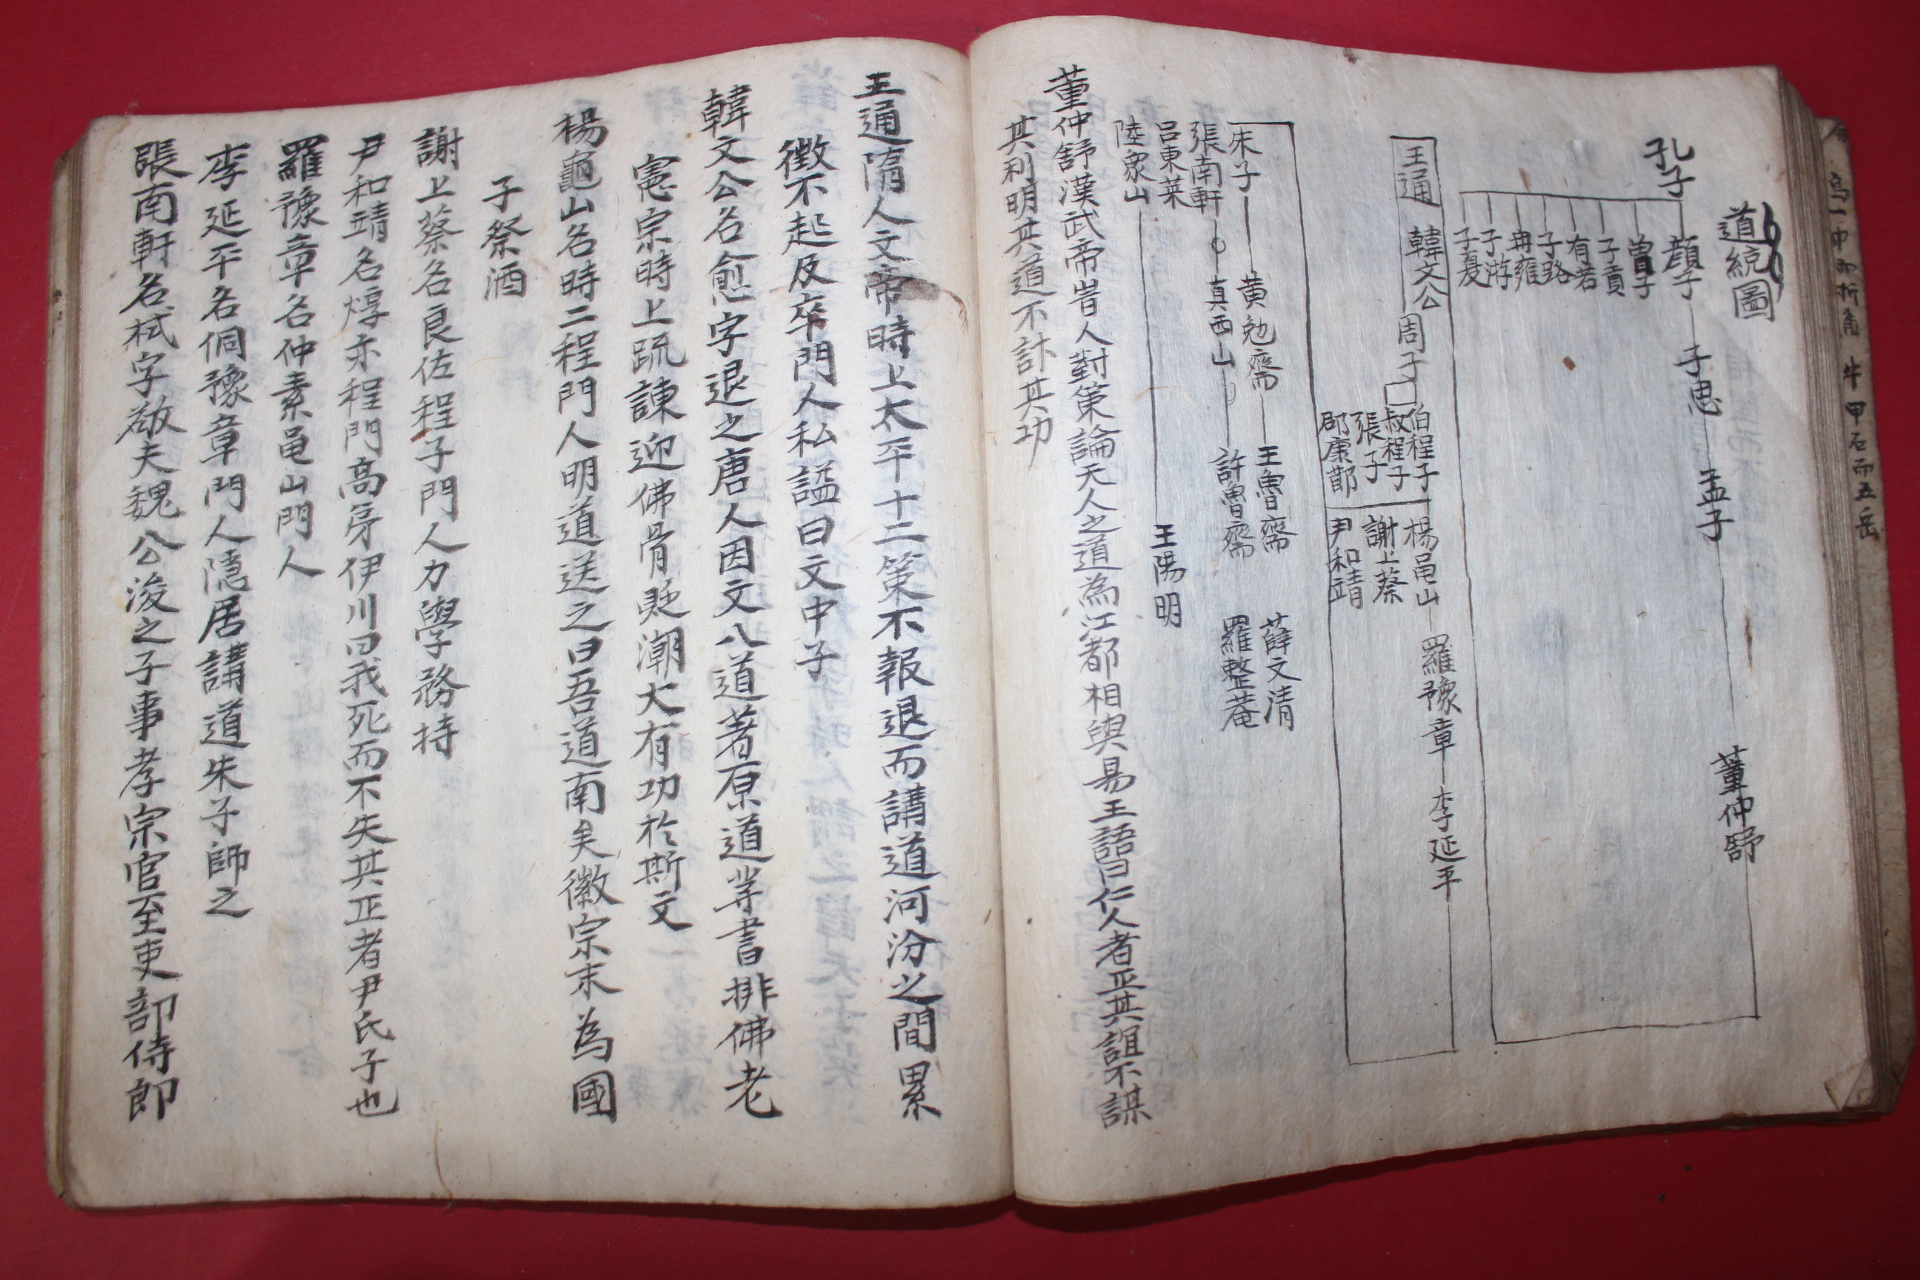 道統圖
孔子
顔子 子思 孟子 董仲舒
曾子
子貢
有若
子路
冉雍
子游
子夏
王通 韓文公 周子
伯程子
叔程子
張子
邵康節
楊龜山 羅豫章 李延平
謝上蔡
尹和靖
朱子 黄勉齋 王魯齋 薛文清
張南軒 真西山 許魯齋 羅整菴
呂東萊
陸象山 王陽明
董仲舒漢武帝昔人對策論天人之道為江都相與易王語曰仁人者正其誼不謀
其利明其道不計其功
王通隋人文帝時上太平十二策不報退而講道河汾之間累
徴不起及卒門人私諡曰文中子
韓文公名愈字退之唐人因文入道著原道等書排佛老
憲宗時上疏諫迎佛骨貶潮大有功於斯文
楊龜山名時二程門人明道送之曰吾道南矣徽宗末為國
子祭酒
謝上蔡名良佐程子門人力學務持
尹和靖名焞亦程門高弟伊川曰我死而不失其正者尹氏子也
羅豫章名仲素龜山門人
李延平名侗豫章門人隱居講道朱子師之
張南軒名栻字敬夫魏公浚之子事孝宗官至吏部侍郎